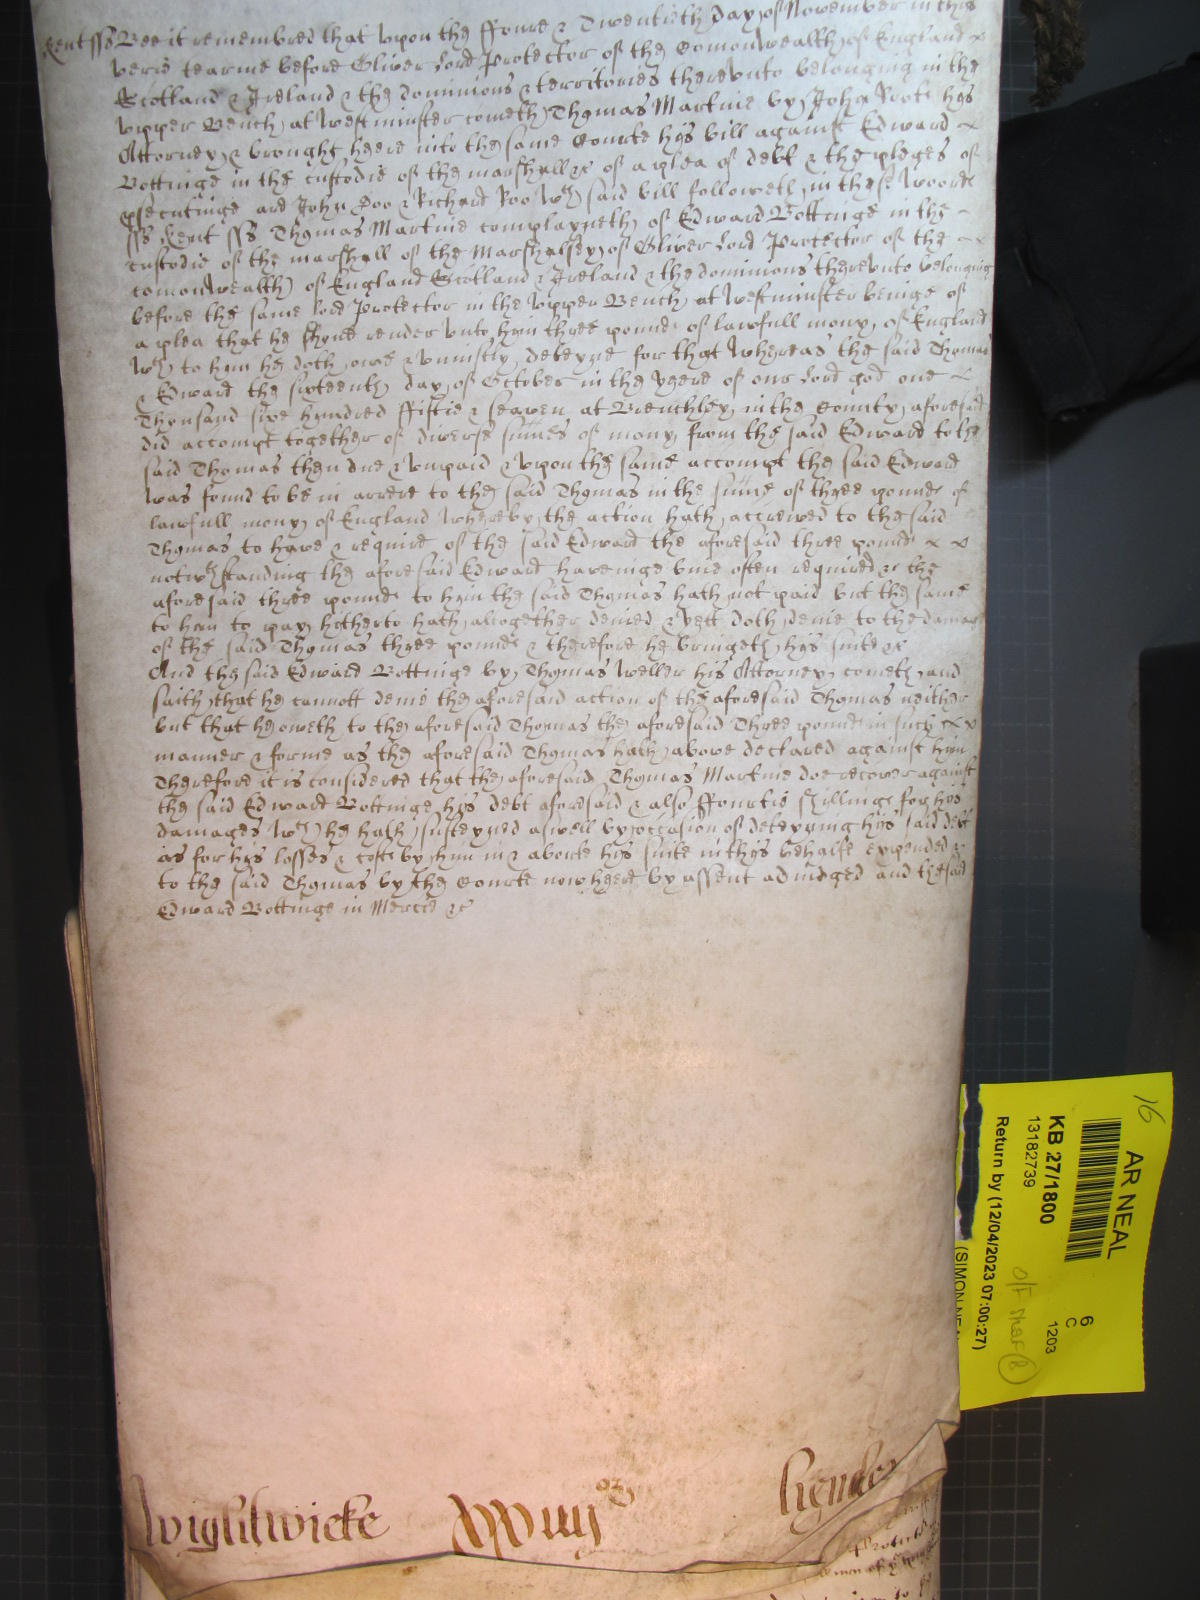 Kent ss Bee it remembred that upon the ffoure & Twentieth day of November in this
verie tearme before Oliver Lord Protector of the Comonwealth of England
Scotland & Ireland & the dominions & territories thereunto belonging in the
Upper Bench at Westminster cometh Thomas Martine by John Roote his
Attorney & brought heere into the same Courte his bill against Edward
Bottinge in the custodie of the marshall &c of a plea of debt & the pleges of
psecutinge are John Doo & Richard Roo wch said bill followeth in these woords
ss Kent ss Thomas Martine complayneth of Edward Bottinge in the
custodie of the marshall of the Marshalsey of Oliver Lord Protector of the
comonwealth of England Scotland & Ireland & the dominions thereunto belonging
before the same lord Protector in the Upper Bench at Westminster beinge of
a plea that he should render unto him three pounds of lawfull mony of England
wch to him he doth owe & uniustly deteyne for that whereas the said Thomas
& Edward the sixteenth day of October in the yeere of our Lord god one
Thousand sixe hundred ffiftie & seaven at Brenchley in the County aforesaid
did accompt together of diverse sumes of mony from the said Edward to the
said Thomas then due & unpaid & upon the same accompt the said Edward
was found to be in arrere to the said Thomas in the sume of three pounds of
lawfull mony of England whereby the action hath accrewed to the said
Thomas to have & require of the said Edward the aforesaid three pounds
notwthstanding the aforesaid Edward haveinge bine often required &c the
aforesaid three pounds to him the said Thomas hath not paid but the same
to him to pay hitherto hath altogether denied & yett doth denie to the damage
of the said Thomas three pounds & therefore he bringeth his suite &c
And the said Edward Bottinge by Thomas Weller his Attorney cometh and
saith that he cannott denie the aforesaid action of the aforesaid Thomas neither
but that he oweth to the aforesaid Thomas the aforesaid Three pounds in such
manner & forme as the aforesaid Thomas hath above declared against him
Therefore it is considered that the aforesaid Thomas Martine doe recover against
the said Edward Bottinge his debt aforesaid & also ffourtie shillings for his
damages wch he hath susteyned aswell by occasion of deteyning his said debt
as for his losses & costs by him in & aboute his suite in this behalfe expended &
to the said Thomas by the Courte now heere by assent adiudged and the said
Edward Bottinge in Mercie &c
Wightwicke xxiiij
AR NEAL
16
KB 27/1800
13182739
Return by (12/04/2023 07:00:27)
6
C
1203
(SIMON NEAL